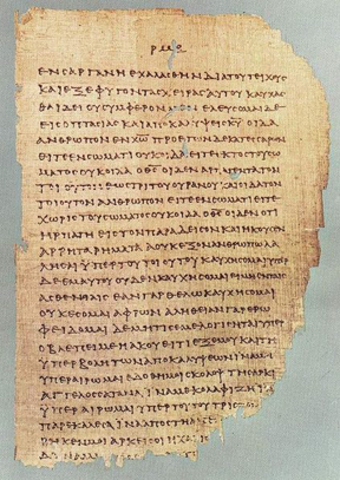 ΕΝΣΑΡΓΑΝΗΕΧΑΛΑΣΘΗΝΔΙΑΤΟΥΤΕΙΧΟΥΣ
ΚΑΙΕΞΕΦΥΓΟΝΤΑΣΧΕΙΡΑΣΑΥΤΟΥΚΑΥΧΑΣ
ΘΑΙΔΕΙΟΥΣΥΜΦΕΡΟΝΜΕΝΕΛΕΥΣΟΜΑΙΔΕ
ΕΙΣΟΠΤΑΣΙΑΣΚΑΙΑΠΟΚΑΛΥΨΕΙΣΚΥΟΙΔΑ
ΑΝΘΡΩΠΟΝΕΝΧΩΠΡΟΕΤΩΝΔΕΚΑΤΕΣΣΑΡΩΝ
ΕΙΤΕΕΝΣΩΜΑΤΙΟΥΚΟΙΔΑΕΙΤΕΕΚΤΟΣΤΟΥΣΩ
ΜΑΤΟΣΟΥΚΟΙΔΑΟΘΣΟΙΔΕΝΑΡΠΑΓΕΝΤΑΤΟΝ
ΤΟΙΟΥΤΟΝΕΩΣΤΡΙΤΟΥΟΥΡΑΝΟΥΚΑΙΟΙΔΑΤΟΝ
ΤΟΙΟΥΤΟΝΑΝΘΡΩΠΟΝΕΙΤΕΕΝΣΩΜΑΤΙΕΙΤΕ
ΧΩΡΙΣΤΟΥΣΩΜΑΤΟΣΟΥΚΟΙΔΑΟΘΣΟΙΔΕΝΟΤΙ
ΗΡΠΑΓΗΕΙΣΤΟΝΠΑΡΑΔΕΙΣΟΝΚΑΙΗΚΟΥΣΕΝ
ΑΡΡΗΤΑΡΗΜΑΤΑΑΟΥΚΕΞΟΝΑΝΘΡΩΠΩΛΑ
ΛΗΣΑΙΥΠΕΡΤΟΥΤΟΙΟΥΤΟΥΚΑΥΧΗΣΟΜΑΙΥΠΕΡ
ΔΕΕΜΑΥΤΟΥΟΥΔΕΝΚΑΥΧΗΣΟΜΑΙΕΙΜΗΕΝΤΑΙΣ
ΑΣΘΕΝΕΙΑΙΣΕΑΝΓΑΡΘΕΛΩΚΑΥΧΗΣΟΜΑΙ
ΟΥΚΕΣΟΜΑΙΑΦΡΩΝΑΛΗΘΕΙΑΝΓΑΡΕΡΩ
ΦΕΙΔΟΜΑΙΔΕΜΗΤΙΣΕΜΕΛΟΓΙΣΗΤΑΙΥΠΕΡ
ΟΒΛΕΠΕΙΜΕΗΑΚΟΥΕΙΤΙΕΞΕΜΟΥΚΑΙΤΗ
ΥΠΕΡΒΟΛΗΤΩΝΑΠΟΚΑΛΥΨΕΩΝΙΝΑΜΗ
ΥΠΕΡΑΙΡΩΜΑΙΕΔΟΘΗΜΟΙΣΚΟΛΟΨΤΗΣΑΡΚΙ
ΑΓΓΕΛΟΣΣΑΤΑΝΑΙΝΑΜΕΚΟΛΑΦΙΖΗΙΝΑ
ΥΠΕΡΑΙΡΩΜΑΙΥΠΕΡΤΟΥΤΟΥΤΡΙΣ
ΠΑΡΕΚΑΛΕΣΑΙΝΑΑΠΟΣΤΗ
ΡΗΚΕΝΜΟΙΑΡΚΕΙΣΟΙΗΧΑΡΙΣ